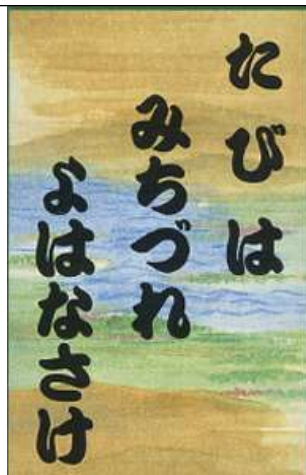 たびは
みちづれ
よはなさけ